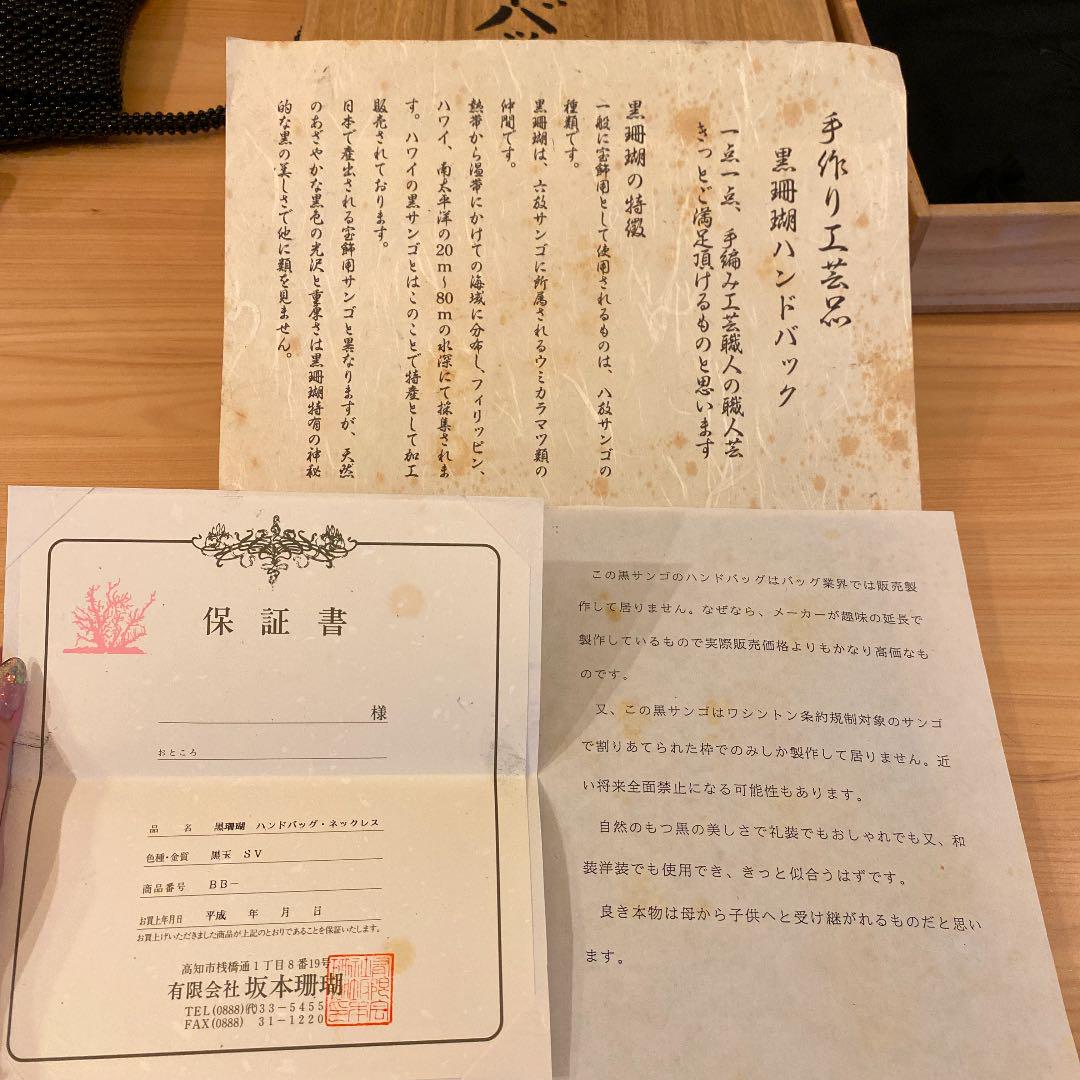 バッ
手作り工芸品
黒珊瑚ハンドバック
一点一点、手編み工芸職人の職人芸
きっとご満足頂けるものと思います
黒珊瑚の特徴
一般に宝飾用として使用されるものは、八放サンゴの
種類です。
黒珊瑚は、六放サンゴに所属されるウミカラマツ類の
仲間です。
熱帯から温帯にかけての海域に分布し、フィリッピン、
ハワイ、南太平洋の20m〜80mの水深にて採集されま
す。ハワイの黒サンゴとはこのことで特産として加工
販売されております。
日本で産出される宝飾用サンゴと異なりますが、天然
のあざやかな黒色の光沢と重厚さは黒珊瑚特有の神秘
的な黒の美しさで他に類を見ません。
保証書
様
おところ
品名 黒珊瑚 ハンドバッグ・ネックレス
色種・金質 黒玉 SV
商品番号 BB－
お買上年月日 平成 年 月 日
お買上げいただきました商品が上記のとおりであることを保証いたします。
高知市桟橋通1丁目8番19号
有限会社 坂本珊瑚
TEL(0888)㈹33－5455
FAX(0888) 31－1220
この黒サンゴのハンドバッグはバッグ業界では販売製
作して居りません。なぜなら、メーカーが趣味の延長で
製作しているもので実際販売価格よりもかなり高価なも
のです。
又、この黒サンゴはワシントン条約規制対象のサンゴ
で割りあてられた枠でのみしか製作して居りません。近
い将来全面禁止になる可能性もあります。
自然のもつ黒の美しさで礼装でもおしゃれでも又、和
装洋装でも使用でき、きっと似合うはずです。
良き本物は母から子供へと受け継がれるものだと思い
ます。